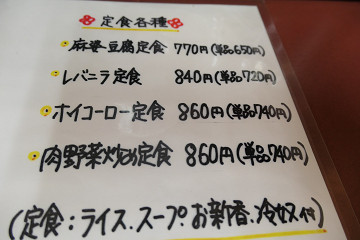 定食各種
麻婆豆腐定食 770円(単品650円)
レバニラ定食 840円(単品720円)
ホイコーロー定食 860円(単品740円)
肉野菜炒め定食 860円(単品740円)
(定食:ライス.スープ.お新香.冷奴付)